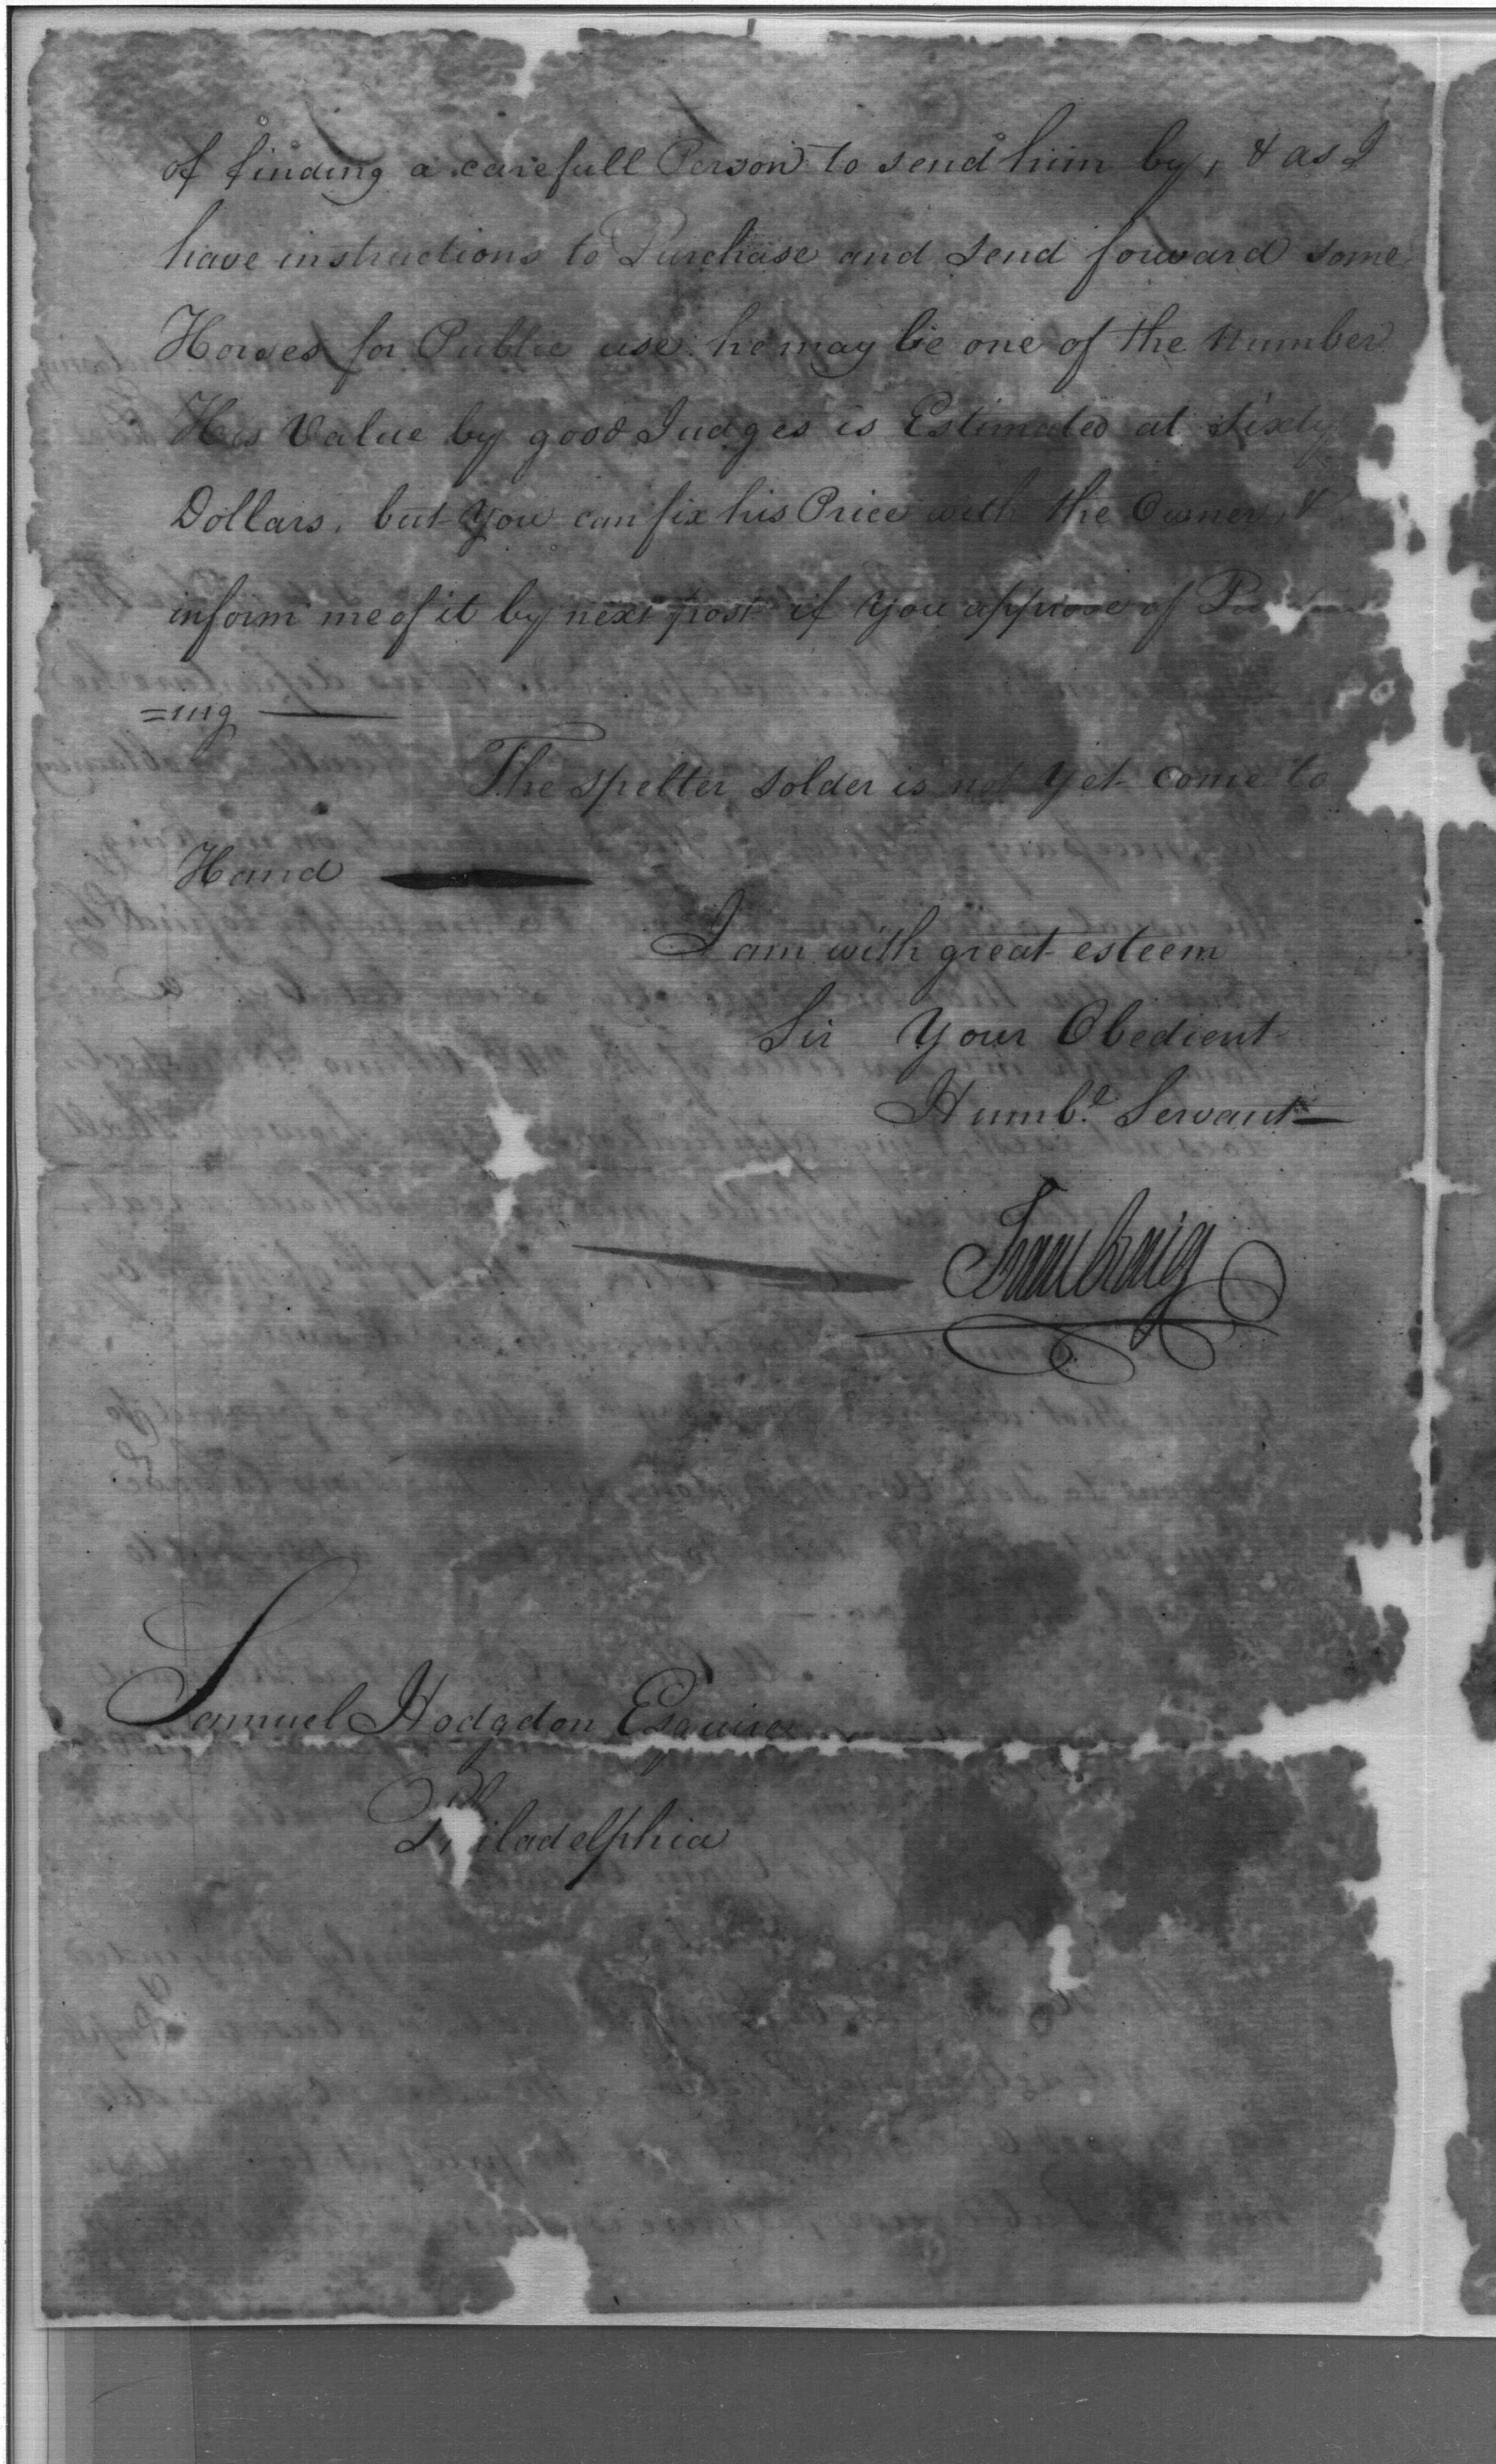 of finding a carefull Person to send him by, & as I
have instructions to Purchase and send forward some
Horses for Public use he may be one of the number
His Value by good Judges is Estimated at sixty
Dollars, but you can fix his Price with the Owner, &
inform me of it by next post if you approve of
=ing
The spelter solder is not yet come to
Hand
I am with great esteem
Sir Your Obedient
Humbe. Servant
Isaac Craig
Samuel Hodgdon Esquire
Philadelphia